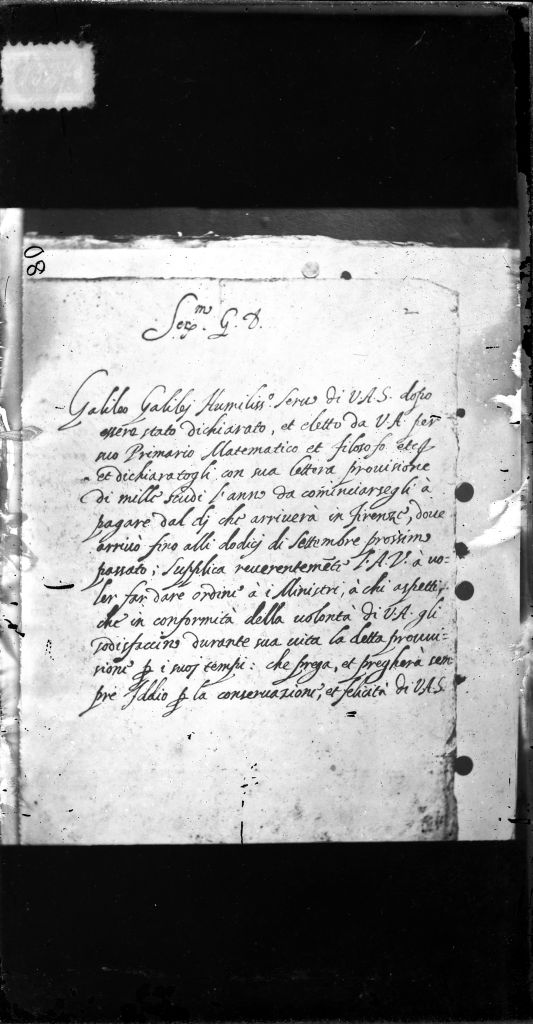 80
2
Ser.mo G. D.
Galileo Galilej Humiliss.o Seruo di V.A.S. dopo
essere stato dichiarato, et eletto da V.A. per
suo Primario Matematico et filosofo etc
et dichiaratogli con sua lettera prouisione
di mille scudi l'anno da cominciarsegli à
pagare dal dj che arriuerà in firenze, doue
arriuò fino alli dodicj di Settembre prossimo
passato; Supplica reuerentemẽte l'A.V. à uo-
ler far dare ordine à i Ministri, à chi aspetta,
che in conformità della uolontà di V.A. gli
sodisfaccino durante sua uita la detta prouui-
sione ꝑ i suoj tempi: che prega, et pregherà sem
pre Iddio ꝑ la conseruazione, et felicità di V.A.S.